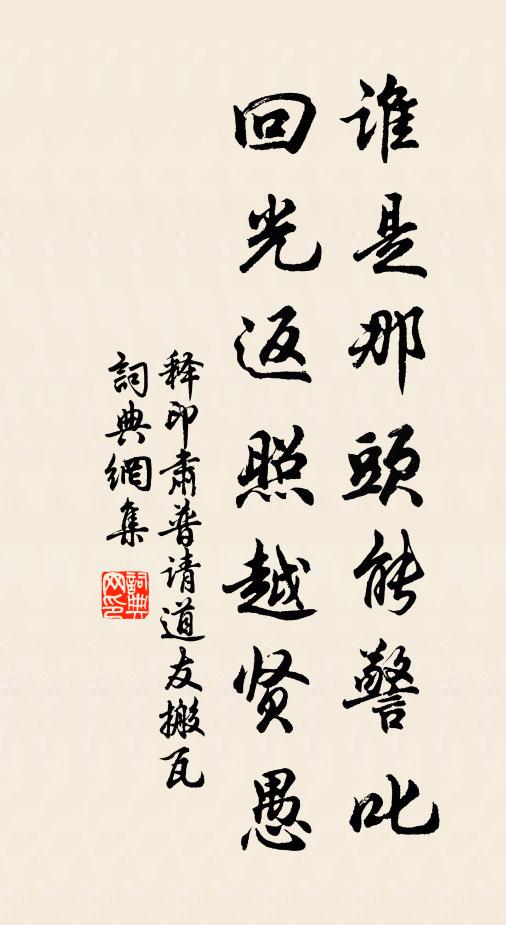 谁是那頭能警叱
回光返照越贤愚
释印肃普请道友搬瓦
詞典網集
詞典网印